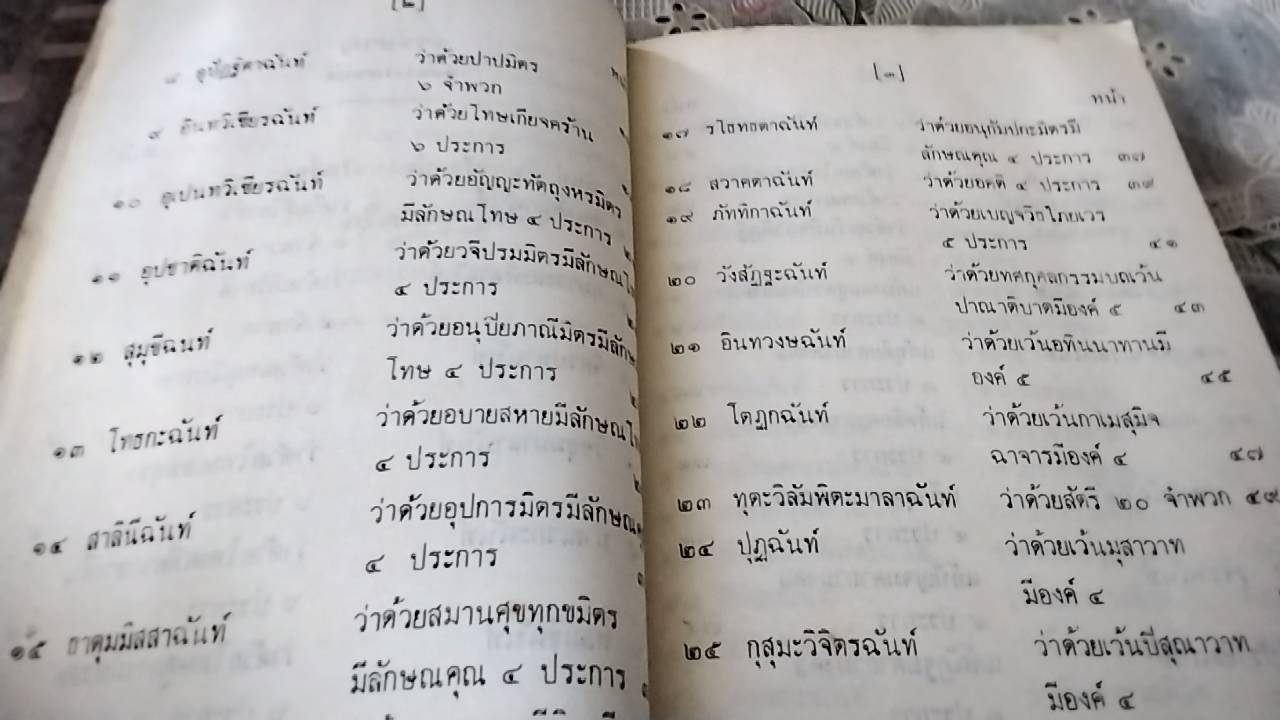 [๒]
๘ อุปัฏฐิตาฉันท์ ว่าด้วยปาปมิตร
๖ จำพวก
๙ อินทวิเชียรฉันท์ ว่าด้วยโทษเกียจคร้าน
๖ ประการ
๑๐ อุเปนทวิเชียรฉันท์ ว่าด้วยยัญญะทัตถุงหรมิตร
มีลักษณโทษ ๔ ประการ
๑๑ อุปชาติฉันท์ ว่าด้วยวจีปรมมิตรมีลักษณ
๔ ประการ
๑๒ สุมุขีฉนท์ ว่าด้วยอนุปิยภาณีมิตรมีลักษ
โทษ ๔ ประการ
๑๓ โทธกะฉันท์ ว่าด้วยอบายสหายมีลักษณ
๔ ประการ
๑๔ สาลินีฉันท์ ว่าด้วยอุปการมิตรมีลักษณ
๔ ประการ
๑๕ ธาตุมมิสสาฉันท์ ว่าด้วยสมานศุขทุกขมิตร
มีลักษณคุณ ๔ ประการ
[๓]
หน้า
๑๗ รโธทธตาฉันท์ ว่าด้วยอนุกัมปกะมิตรมี
ลักษณคุณ ๔ ประการ ๓๗
๑๘ สวาคตาฉันท์ ว่าด้วยอคติ ๔ ประการ ๓๙
๑๙ ภัททิกาฉันท์ ว่าด้วยเบญจวิธไภยเวร
๕ ประการ ๔๑
๒๐ วังสัฏฐะฉันท์ ว่าด้วยทศกุศลกรรมบถเว้น
ปาณาติบาตมีองค์ ๕ ๔๓
๒๑ อินทวงษฉันท์ ว่าด้วยเว้นอทินนาทานมี
องค์ ๕ ๔๕
๒๒ โตฏกฉันท์ ว่าด้วยเว้นกาเมสุมิจ
ฉาจารมีองค์ ๔ ๔๗
๒๓ ทุตะวิลัมพิตะมาลาฉันท์ ว่าด้วยสัตรี ๒๐ จำพวก ๔๙
๒๔ ปุฏฉันท์ ว่าด้วยเว้นมุสาวาท
มีองค์ ๔
๒๕ กุสุมะวิจิตรฉันท์ ว่าด้วยเว้นปิสุณาวาท
มีองค์ ๔